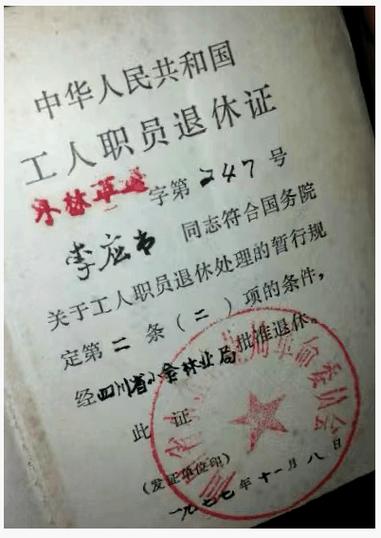 中华人民共和国
工人职员退休证
小林革退 字第 247 号
李应书 同志符合国务院
关于工人职员退休处理的暂行规
定第二条（二）项的条件，
经四川省小金林业局批准退休。
此证
（发证单位印）
州革命委员会
一九七七年十一月八日